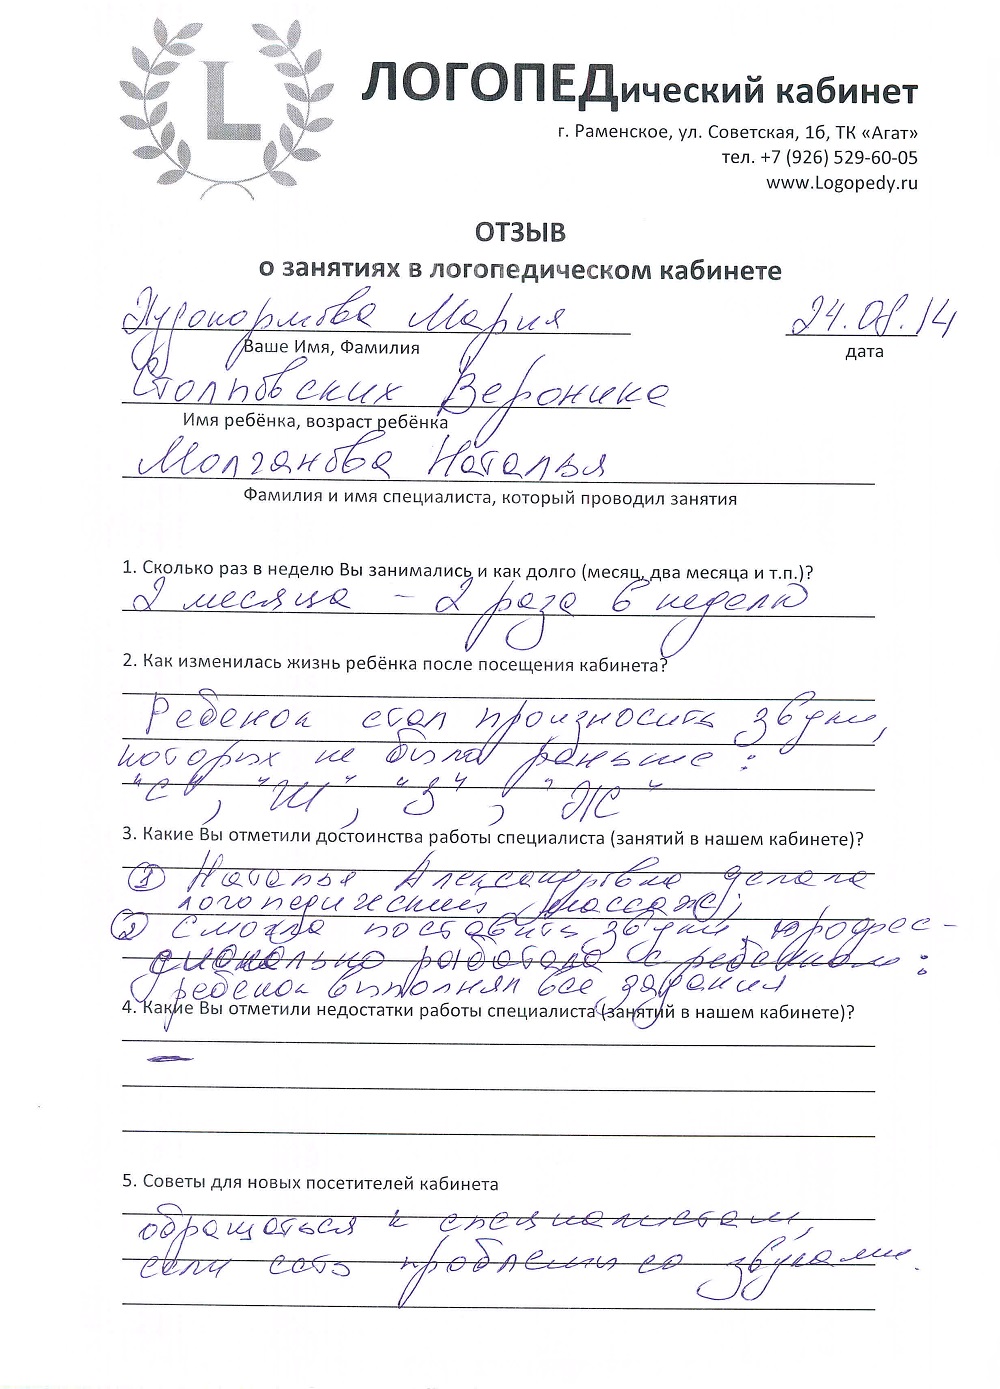 L
ЛОГОПЕДический кабинет
г. Раменское, ул. Советская, 1б, ТК «Агат»
тел. +7 (926) 529-60-05
www.Logopedy.ru
ОТЗЫВ
о занятиях в логопедическом кабинете
Худокормова Мария 24.08.14
Ваше Имя, Фамилия дата
Столповских Вероника
Имя ребёнка, возраст ребёнка
Молчанова Наталья
Фамилия и имя специалиста, который проводил занятия
1. Сколько раз в неделю Вы занимались и как долго (месяц, два месяца и т.п.)?
2 месяца – 2 раза в неделю
2. Как изменилась жизнь ребёнка после посещения кабинета?
Ребенок стал произносить звуки,
которых не было раньше:
"С", "Ш", "З", "Ж"
3. Какие Вы отметили достоинства работы специалиста (занятий в нашем кабинете)?
① Наталья Александровна делала
логопедический массаж;
② Смогла поставить звуки, профес-
сионально работала с ребенком:
ребенок выполнял все задания
4. Какие Вы отметили недостатки работы специалиста (занятий в нашем кабинете)?
–
5. Советы для новых посетителей кабинета
обращаться к специалистам,
если есть проблемы со звуками.